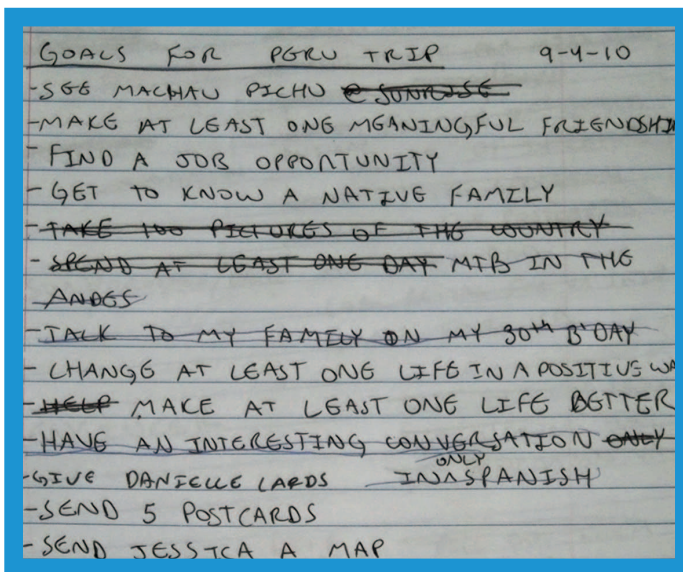 GOALS FOR PERU TRIP 9-4-10
-SEE MACHAU PICHU @ SUNRISE
-MAKE AT LEAST ONE MEANINGFUL FRIENDSHIP
- FIND A JOB OPPORTUNITY
- GET TO KNOW A NATIVE FAMILY
- TAKE 100 PICTURES OF THE COUNTRY
- SPEND AT LEAST ONE DAY MTB IN THE
ANDES
- TALK TO MY FAMILY ON MY 30th B'DAY
- CHANGE AT LEAST ONE LIFE IN A POSITIVE WA
- HELP MAKE AT LEAST ONE LIFE BETTER
- HAVE AN INTERESTING CONVERSATION ONLY
ONLY
-GIVE DANIELLE CARDS IN^SPANISH
-SEND 5 POSTCARDS
- SEND JESSICA A MAP